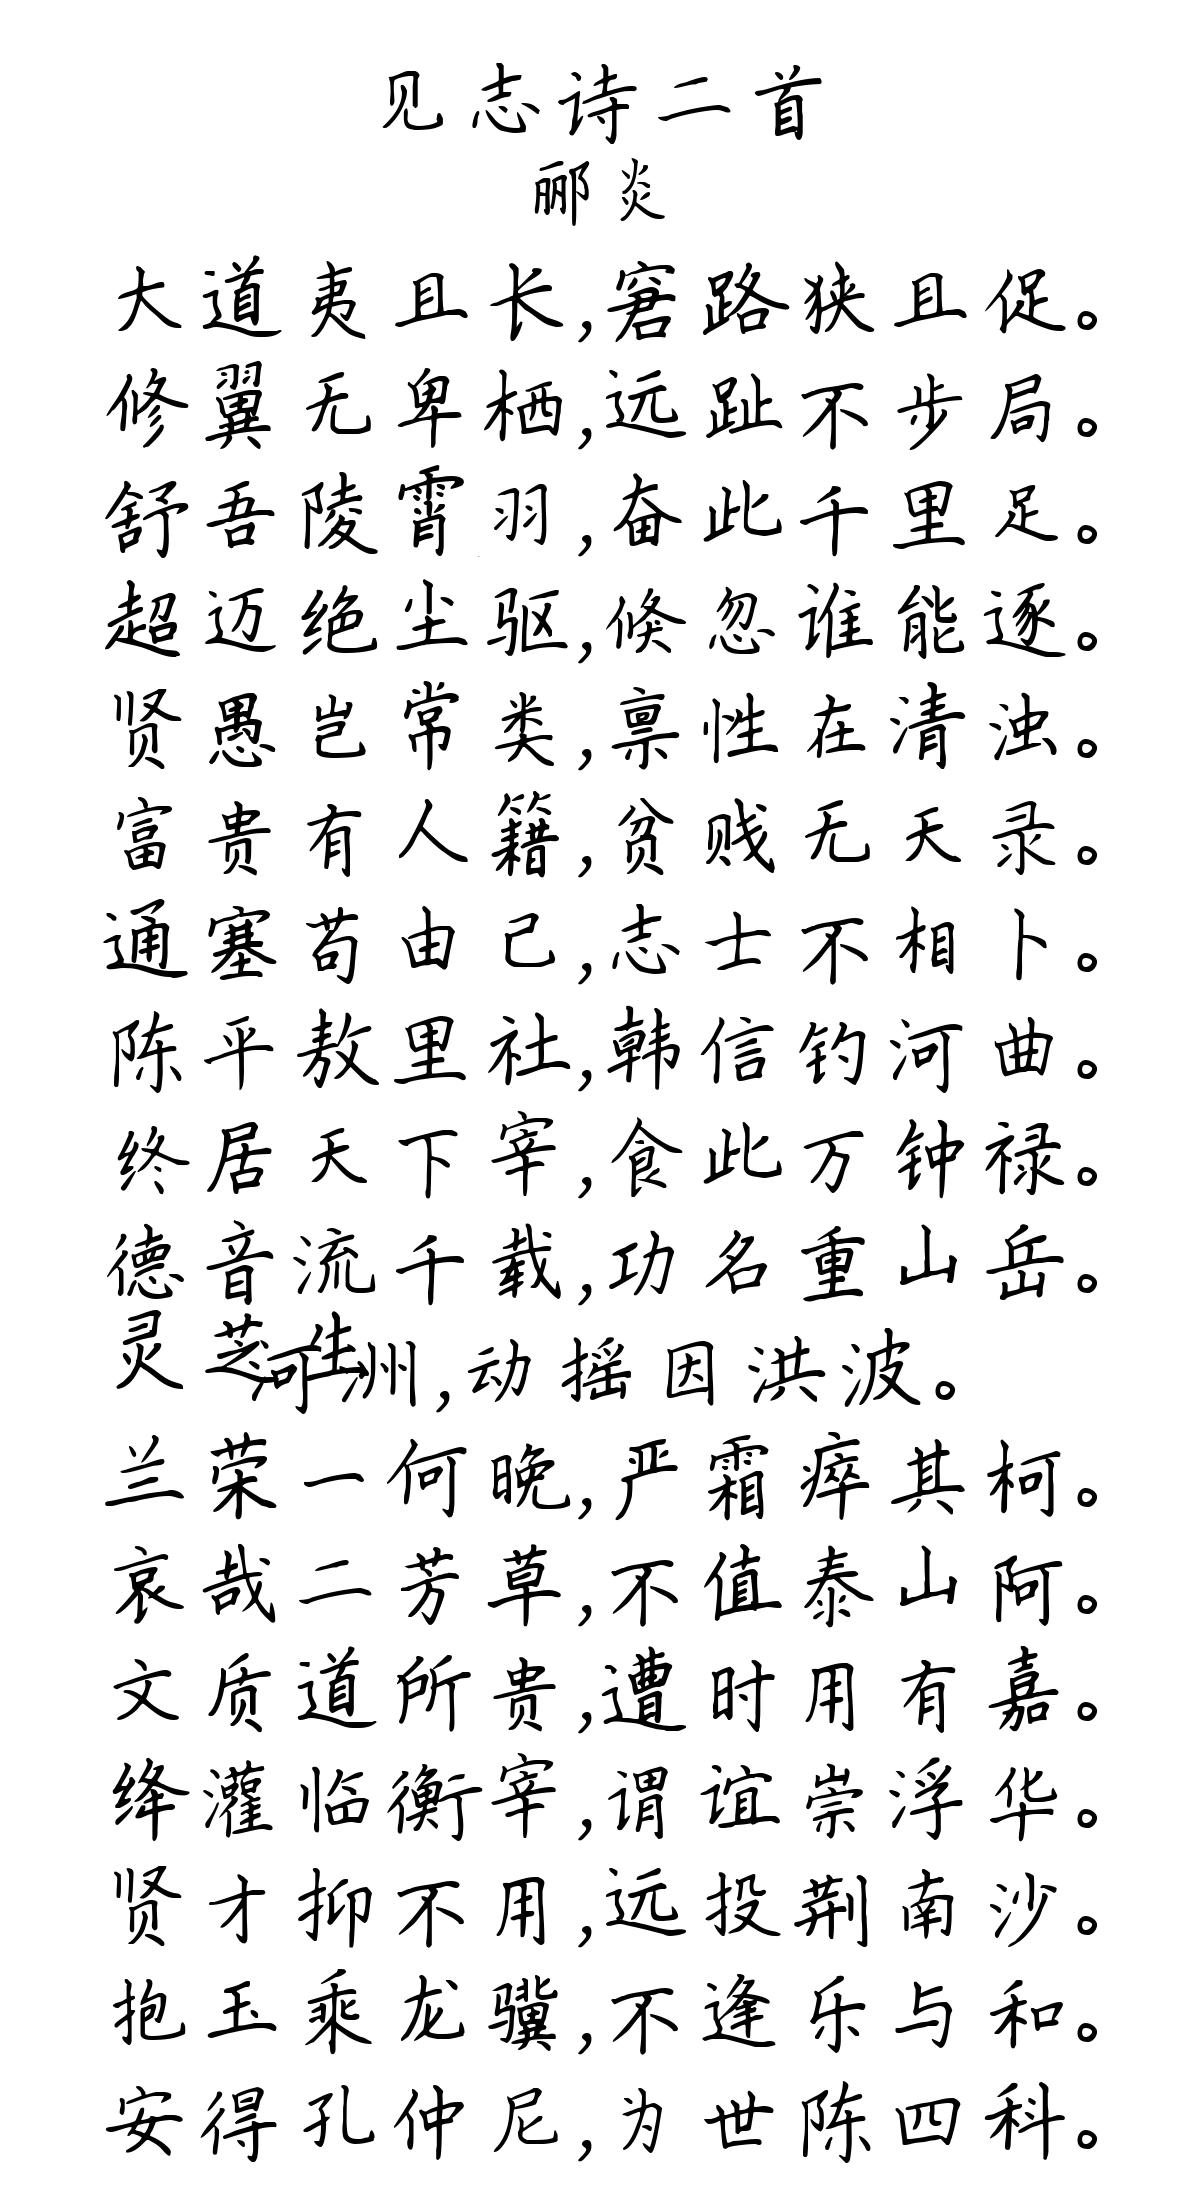 见志诗二首
郦炎
大道夷且长,窘路狭且促。
修翼无卑栖,远趾不步局。
舒吾陵霄羽,奋此千里足。
超迈绝尘驱,倏忽谁能逐。
贤愚岂常类,禀性在清浊。
富贵有人籍,贫贱无天录。
通塞苟由己,志士不相卜。
陈平敖里社,韩信钓河曲。
终居天下宰,食此万钟禄。
德音流千载,功名重山岳。
灵芝生河洲,动摇因洪波。
兰荣一何晚,严霜瘁其柯。
哀哉二芳草,不值泰山阿。
文质道所贵,遭时用有嘉。
绛灌临衡宰,谓谊崇浮华。
贤才抑不用,远投荆南沙。
抱玉乘龙骥,不逢乐与和。
安得孔仲尼,为世陈四科。